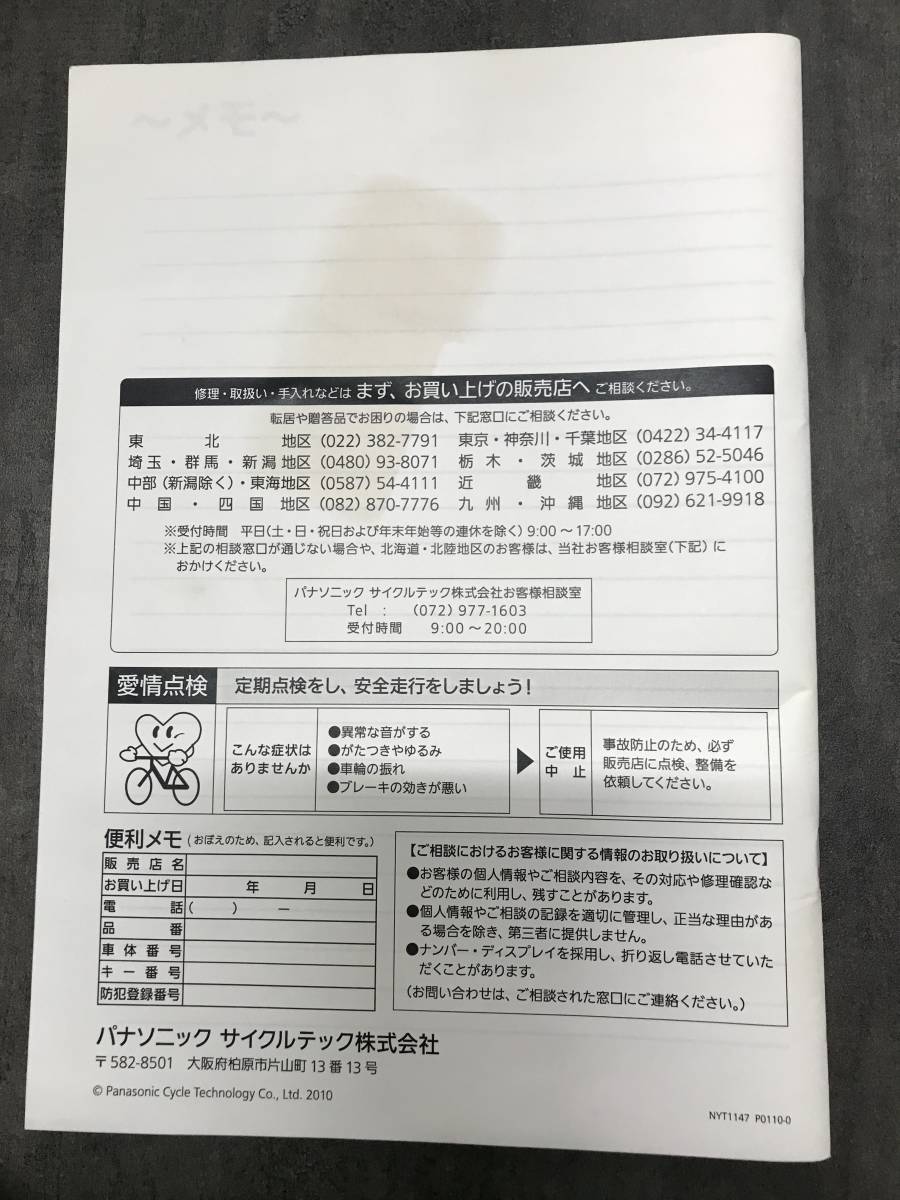 ～メモ～
修理・取扱い・手入れなどは まず、お買い上げの販売店へ ご相談ください。
転居や贈答品でお困りの場合は、下記窓口にご相談ください。
東北地区 (022) 382-7791 東京・神奈川・千葉地区 (0422) 34-4117
埼玉・群馬・新潟地区 (0480) 93-8071 栃木・茨城地区 (0286) 52-5046
中部(新潟除く)・東海地区 (0587) 54-4111 近畿地区 (072) 975-4100
中国・四国地区 (082) 870-7776 九州・沖縄地区 (092) 621-9918
※受付時間 平日(土・日・祝日および年末年始等の連休を除く) 9:00～17:00
※上記の相談窓口が通じない場合や、北海道・北陸地区のお客様は、当社お客様相談室(下記)に
おかけください。
パナソニック サイクルテック株式会社お客様相談室
Tel : (072) 977-1603
受付時間 9:00～20:00
愛情点検 定期点検をし、安全走行をしましょう!
こんな症状は
ありませんか
●異常な音がする
●がたつきやゆるみ
●車輪の振れ
●ブレーキの効きが悪い
ご使用
中止
事故防止のため、必ず
販売店に点検、整備を
依頼してください。
便利メモ (おぼえのため、記入されると便利です。)
販売店名
お買い上げ日 年 月 日
電話 ( ) ー
品番
車体番号
キー番号
防犯登録番号
【ご相談におけるお客様に関する情報のお取り扱いについて】
●お客様の個人情報やご相談内容を、その対応や修理確認な
どのために利用し、残すことがあります。
●個人情報やご相談の記録を適切に管理し、正当な理由があ
る場合を除き、第三者に提供しません。
●ナンバー・ディスプレイを採用し、折り返し電話させていた
だくことがあります。
(お問い合わせは、ご相談された窓口にご連絡ください。)
パナソニック サイクルテック株式会社
〒582-8501 大阪府柏原市片山町13番13号
© Panasonic Cycle Technology Co., Ltd. 2010
NYT1147 P0110-0